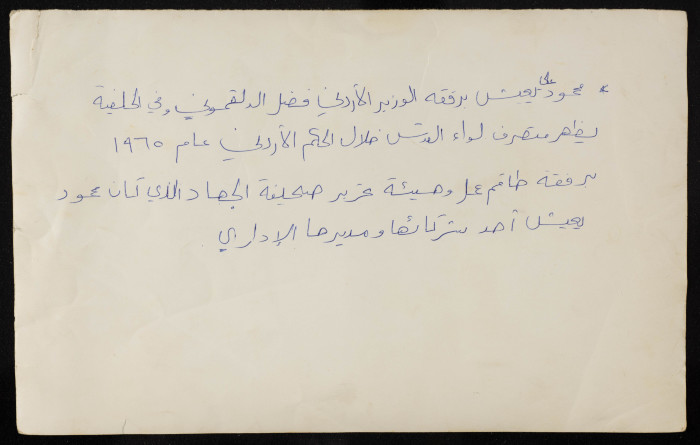 * محمود علي يعيش برفقه الوزير الأردني فضل الدلقموني وفي الخلفية
يظهر متصرف لواء القدس خلال الحكم الأردني عام ١٩٦٥
برفقة طاقم عمل وهيئة تحرير صحيفة الجهاد الذي كان محمود
يعيش أحد شركائها ومديرها الإداري